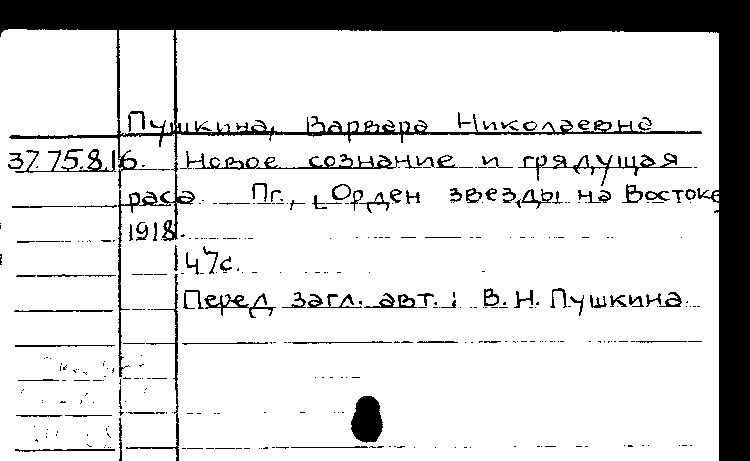 Пушкина, Варвара Николаевна
37.75.8.16. Новое сознание и грядущая
раса. Пг., "Орден звезды на Востоке",
1918.
47с.
Перед загл. авт.: В.Н. Пушкина